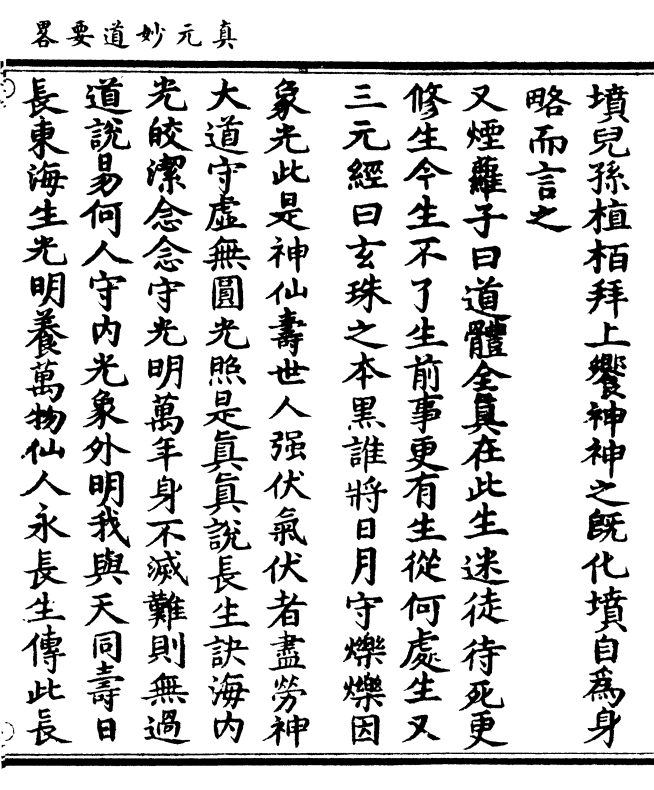 真元妙道要畧
墳兒孫植栢拜上饗神神之旣化墳自為身
略而言之
又煙蘿子曰道體全真在此生迷徒待死更
修生今生不了生前事更有生從何處生又
三元經曰玄珠之本黒誰將日月守爍爍因
象光此是神仙壽世人强伏氣伏者盡勞神
大道守虛無圓光照是眞眞說長生訣海内
光皎潔念念守光明萬年身不滅難則無過
道說易何人守内光象外明我與天同壽日
長東海生光明養萬物仙人永長生傳此長